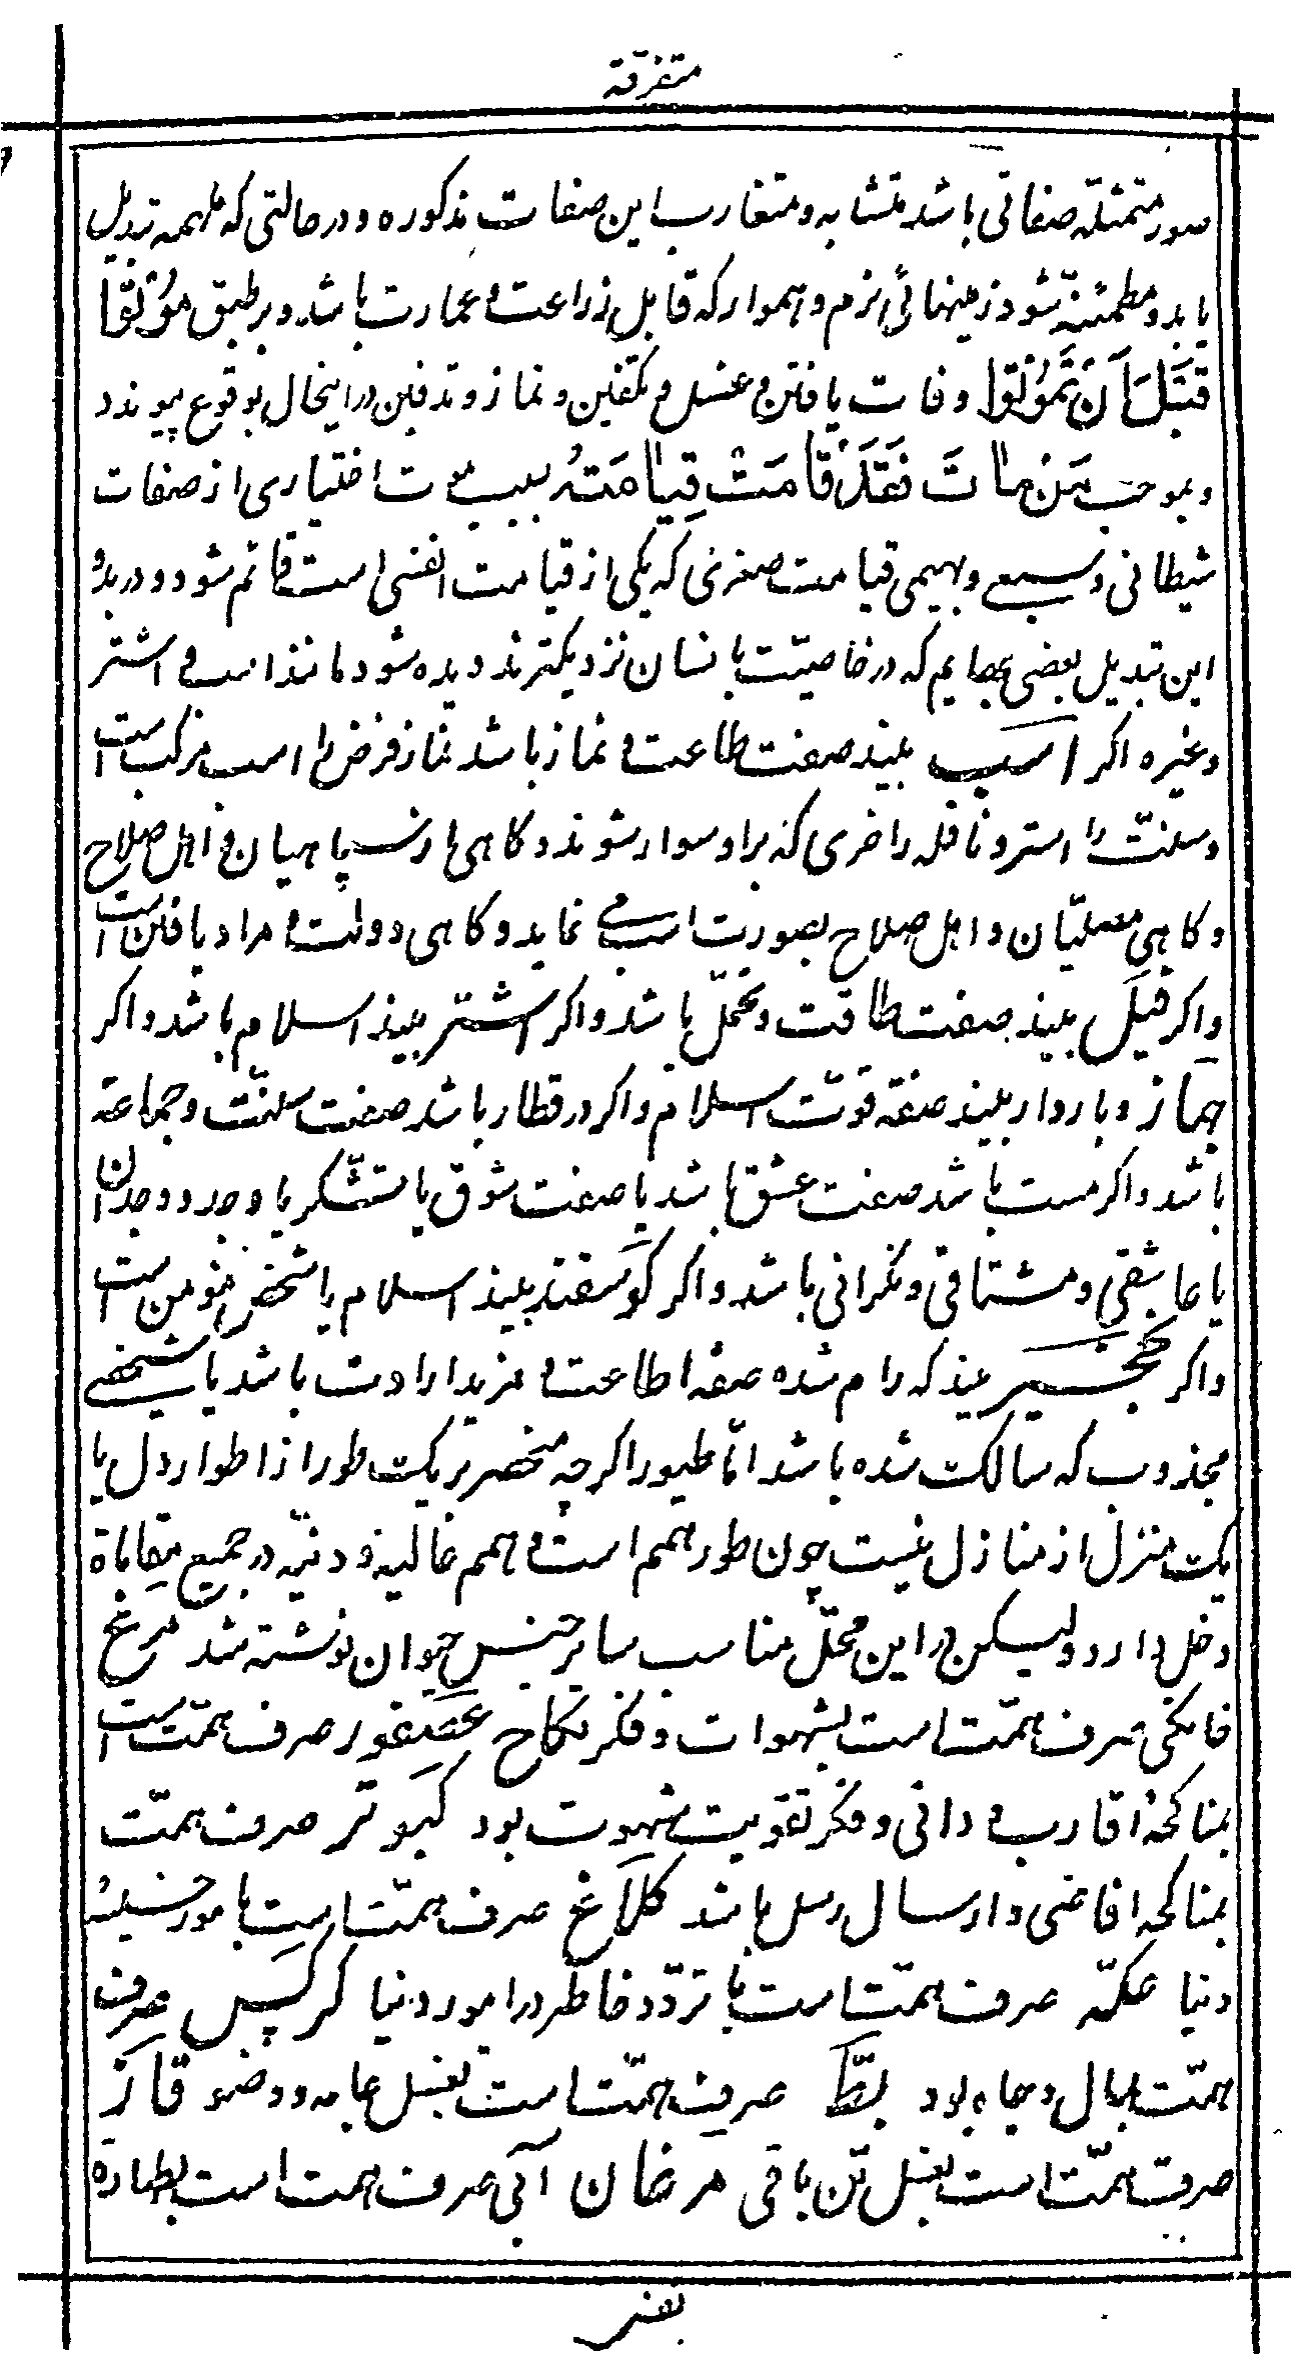 متفرقة
صور متمثله صفاتی باشد متشابه و متقارب این صفات مذکوره و در حالتی که ملهمه تبدیل
یابد و مطمئنه شود زمینهائی نرم و هموار که قابل زراعت و عمارت باشد و بر طبق مُوْتُوْا
قَبْلَ اَنْ تَمُوْتُوْا وفات یافتن و غسل و تکفین و نماز و تدفین در اینحال بوقوع پیوندد
و بموجب مَنْ مٰاتَ فَقَدْ قٰامَتْ قِیٰامَتُهُ بسبب موت اختیاری از صفات
شیطانی و سبعی و بهیمی قیامت صغری که یکی از قیامت انفسی است قائم شود و در بدو
این تبدیل بعضی بهایم که در خاصیّت بانسان نزدیکترند دیده شود مانند اسب و اشتر
و غیره اکر اسب بیند صفت طاعت و نماز باشد نماز فرض را اسب مرکب است
و سنّت را استر و نافله را خری که بر او سوار شوند و کاهی از سپاهیان و اهل صلاح
و کاهی مصلیّان و اهل صلاح بصورت اسب می نماید و کاهی دولت و مراد یافتن است
و اکر فیل بیند صفت طاقت و تحمّل باشد و اکر اشتر بیند اسلام باشد و اکر
جماز و باردار بیند صفة قوّت اسلام و اکر در قطار باشد صفت سنّت و جماعة
باشد و اکر مست باشد صفت عشق باشد یا صفت شوق یا تشکر یا وجد و وجدان
یا عاشقی و مشتاقی و نکرانی باشد و اکر کوسفند بیند اسلام یا شخص مؤمن است
و اکر نخجیر بیند که رام شده صفة اطاعت و مزید ارادت باشد یا شخصی
مجذوب که سالک شده باشد امّا طیور اکرچه منحصر بر یکت طور از اطوار دل یا
یکت منزل از منازل نیست چون طور همم است و همم عالیه و دنیّه در جمیع مقاماة
دخل دارد ولیکن در این محلّ مناسب سایر جنس حیوان نوشته شد مرغ
خانکی صرف همّت است بشهوات و فکر نکاح عصفور صرف همّت است
بمناکحهٔ اقارب و دانی و فکر تقویت شهوت بود کبوتر صرف همّت
بمناکحه اقاصی و ارسال رسل باشد کلاغ صرف همّت است بامور خسیسهٔ
دنیا عکّه صرف همّت است با تردّد خاطر در امور دنیا کرکس صرف
همّت بمال و جاه بود بطّ صرف همّت است بغسل جامه و وضو قاز
صرف همّت است بغسل تن باقی مرغان آبی صرف همت است بطهارة
نفس